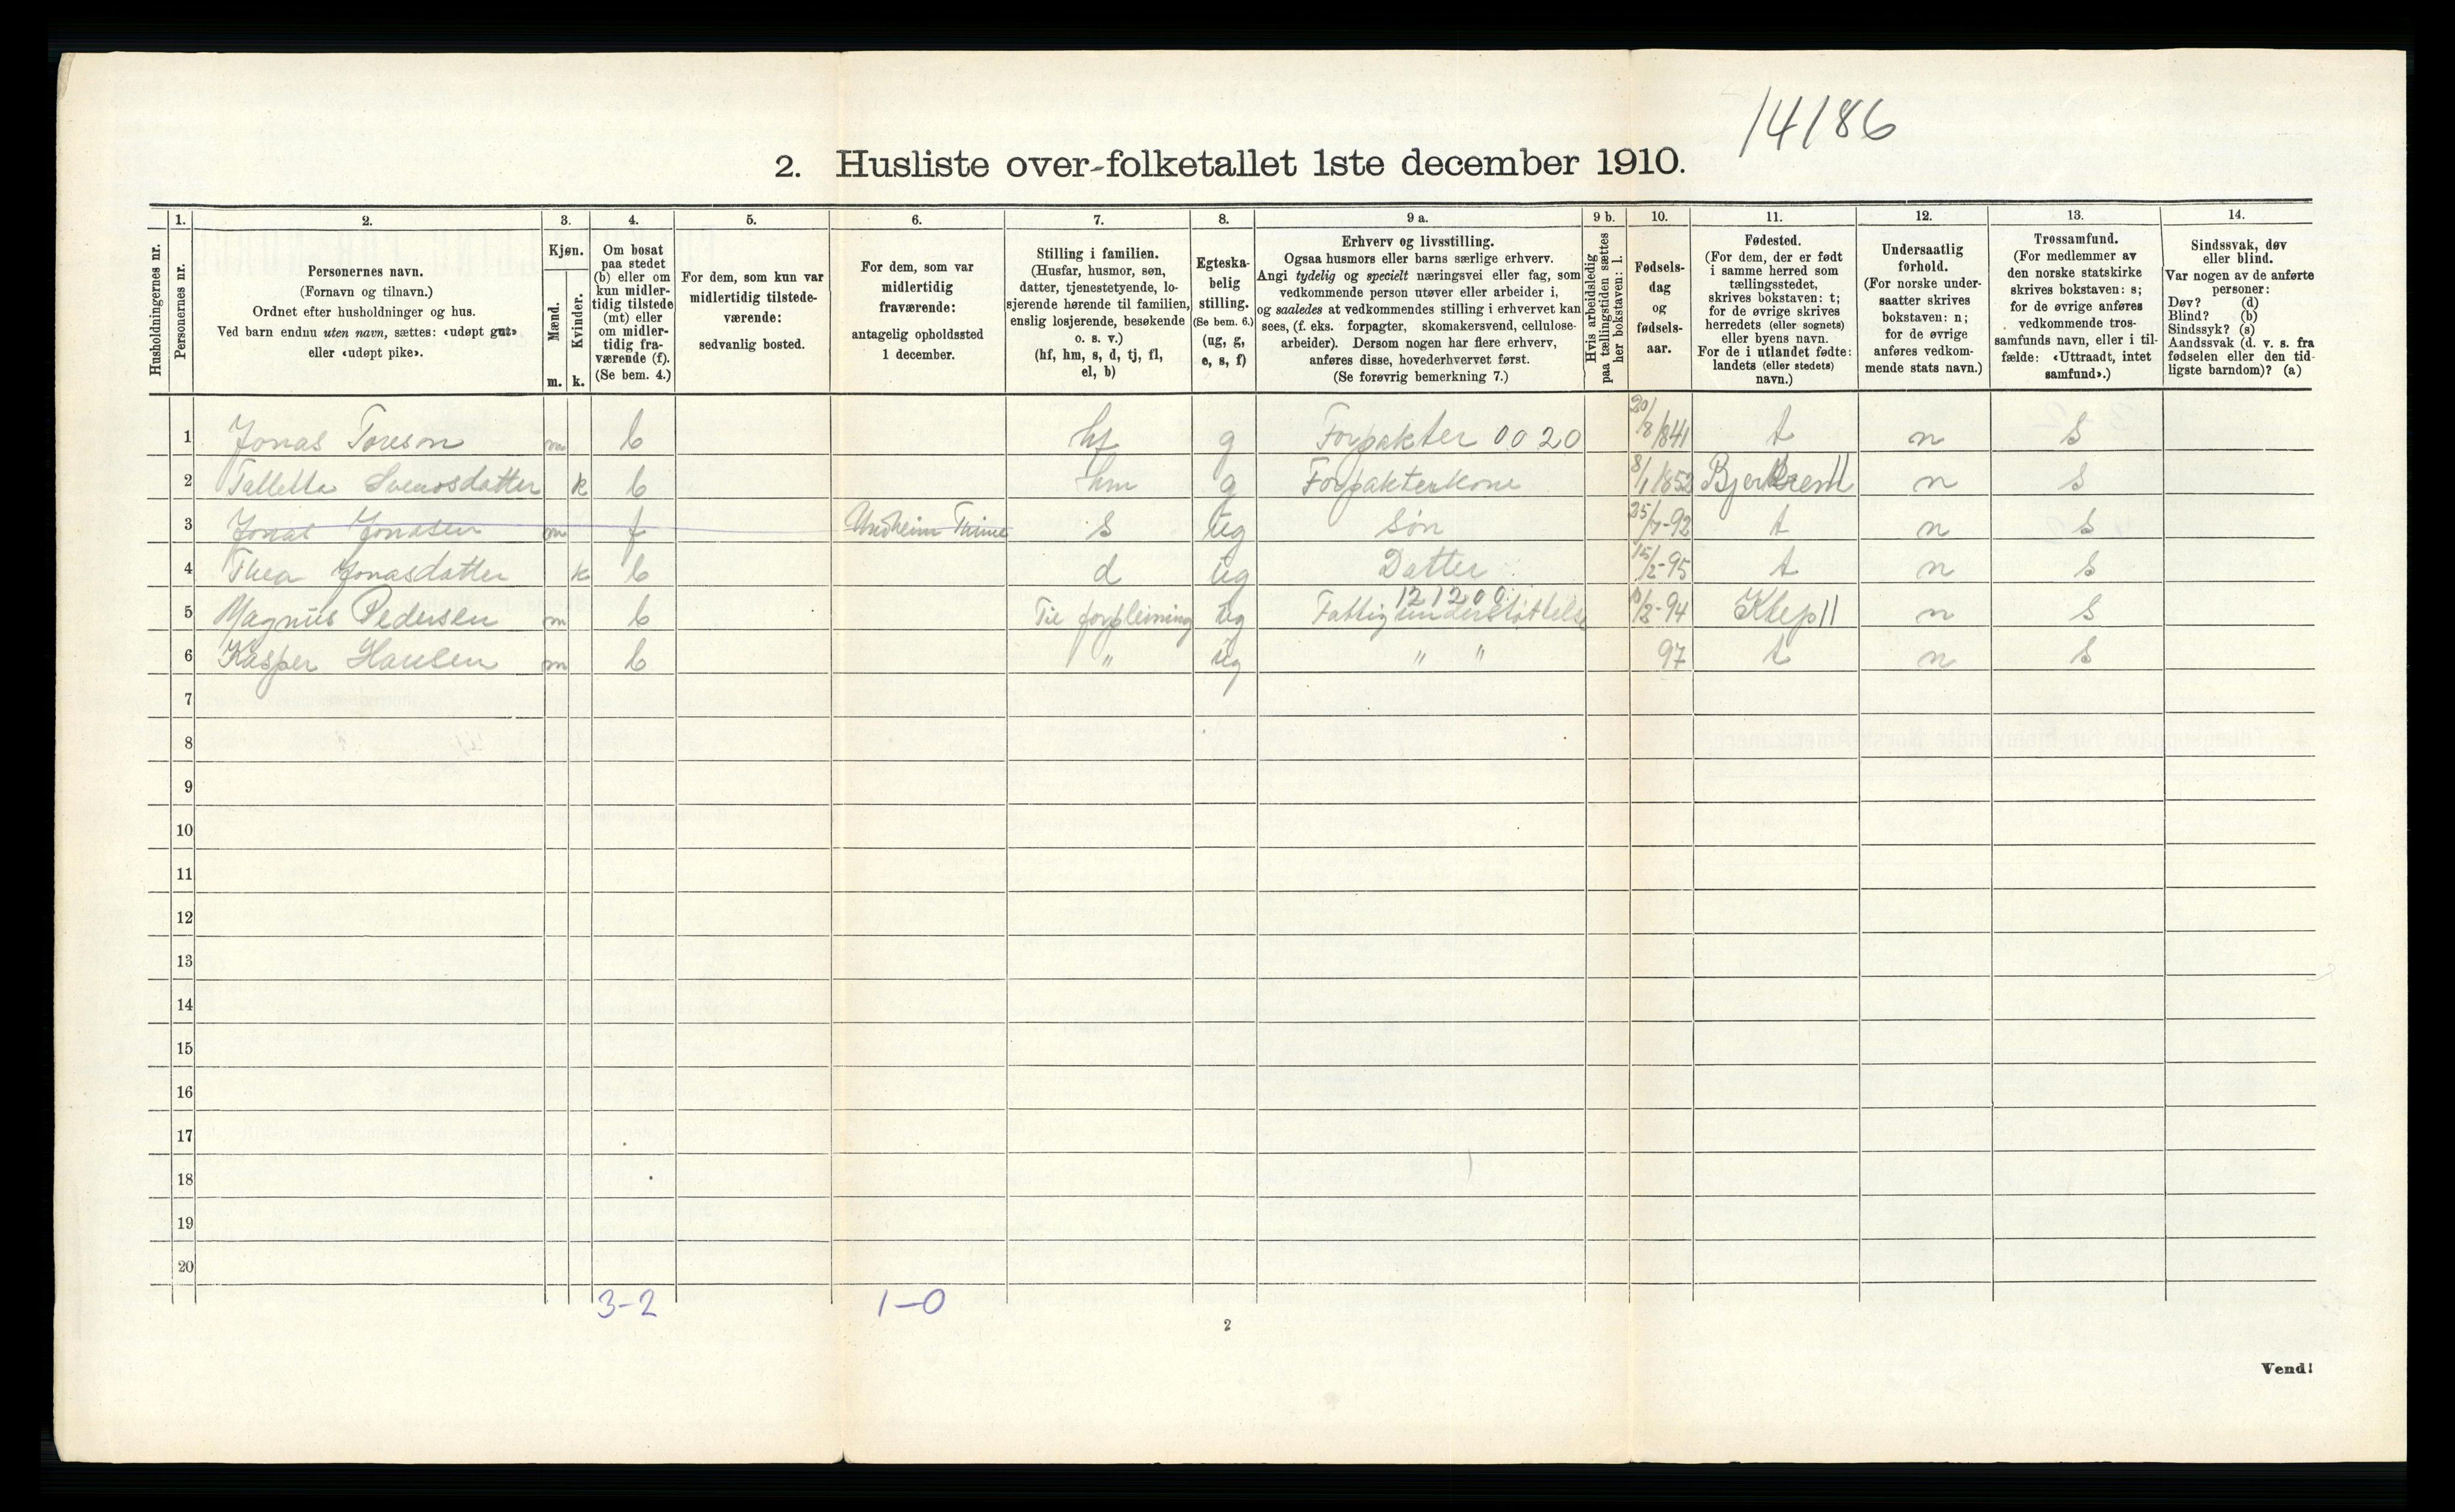 14/86
2. Husliste over folketallet 1ste december 1910.
Husholdningernes nr.
1.
Personernes nr.
2.
Personernes navn.
(Fornavn og tilnavn.)
Ordnet efter husholdninger og hus.
Ved barn endnu uten navn, sættes: «udøpt gut»
eller «udøpt pike».
3.
Kjøn.
Mænd.
Kvinder.
m. k.
4.
Om bosat
paa stedet
(b) eller om
kun midler-
tidig tilstede
(mt) eller
om midler-
tidig fra-
værende (f).
(Se bem. 4.)
5.
For dem, som kun var
midlertidig tilstede-
værende:
sedvanlig bosted.
6.
For dem, som var
midlertidig
fraværende:
antagelig opholdssted
1 december.
7.
Stilling i familien.
(Husfar, husmor, søn,
datter, tjenestetyende, lo-
sjerende hørende til familien,
enslig losjerende, besøkende
o. s. v.)
(hf, hm, s, d, tj, fl,
el, b)
8.
Egteska-
belig
stilling.
(Se bem. 6.)
(ug, g,
e, s, f)
9 a.
Erhverv og livsstilling.
Ogsaa husmors eller barns særlige erhverv.
Angi tydelig og specielt næringsvei eller fag, som
vedkommende person utøver eller arbeider i,
og saaledes at vedkommendes stilling i erhvervet kan
sees, (f. eks. forpagter, skomakersvend, cellulose-
arbeider). Dersom nogen har flere erhverv,
anføres disse, hovederhvervet først.
(Se forøvrig bemerkning 7.)
9 b.
Hvis arbeidsledig
paa tællingstiden sættes
her bokstaven: l.
10.
Fødsels-
dag
og
fødsels-
aar.
11.
Fødested.
(For dem, der er født
i samme herred som
tællingsstedet,
skrives bokstaven: t;
for de øvrige skrives
herredets (eller sognets)
eller byens navn.
For de i utlandet fødte:
landets (eller stedets)
navn.)
12.
Undersaatlig
forhold.
(For norske under-
saatter skrives
bokstaven: n;
for de øvrige
anføres vedkom-
mende stats navn.)
13.
Trossamfund.
(For medlemmer av
den norske statskirke
skrives bokstaven: s;
for de øvrige anføres
vedkommende tros-
samfunds navn, eller i til-
fælde: «Uttraadt, intet
samfund».)
14.
Sindssvak, døv
eller blind.
Var nogen av de anførte
personer:
Døv? (d)
Blind? (b)
Sindssyk? (s)
Aandssvak (d. v. s. fra
fødselen eller den tid-
ligste barndom)? (a)
1 Jonas Toreson m b hf g Forpakter 0020 20/8 1841 t n s
2 Talletta Svenosdatter k b hm g Forpakterkone 8/1 1852 Bjerkrem 11 n s
3 Jonas Jonasen m f Undheim Thime s ug Søn 25/7-92 t n s
4 Thea Jonasdatter k b d ug Datter 15/2-95 t n s
5 Magnus Pedersen m b Til forpleining ug 121200 Fattigunderstøttelse -94 Klep 11 n s
6 Kasper Hansen m b " ug " " 97 t n s
7
8
9
10
11
12
13
14
15
16
17
18
19
20
3-2 1-0
2
Vend!